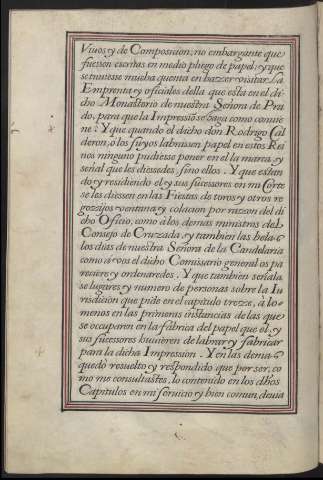 Viuos, y de Composicion; no embargante que
fuesson escritas en medio pliego de papel; y que
se tuuiesse mucha quenta en hazer visitar la
Emprenta y oficiales della que esta en el di
cho Monasterio de nuestra Señora de Pra
do, para que la Impression se haga como conuie
ne: Y que quando el dicho don Rodrigo Cal
deron, o los suyos labrassen papel en estos Rei
nos ninguno pudiesse poner en el la marca, y
señal que les diessedes, sino ellos. Y que estan
do, y residiendo el, y sus sucessores en mi Corte
se les diessen en las Fiestas de toros, y otros re
gozijos ventana, y colacion por razon del di
cho Oficio, como a los demas ministros del
Consejo de Cruzada, y tambien las velas
los dias de nuestra Señora de la Candelaria
como a vos el dicho Comissario general os pa
reciere, y ordenaredes. Y que tambien señala
se lugares, y numero de personas sobre la Iu
risdicion que pide en el capitulo trezze, à lo
menos en las primeras instancias de las que
se occuparen en la fábrica del papel que el, y
sus sucessores huuieren de labrar, y fabricar
para la dicha Impression. Y en las demas
quedò resuelto, y respondido que por ser, co
mo me consultastes, lo contenido en los dhos
Capitulos en mi seruicio, y bien comun, deuia